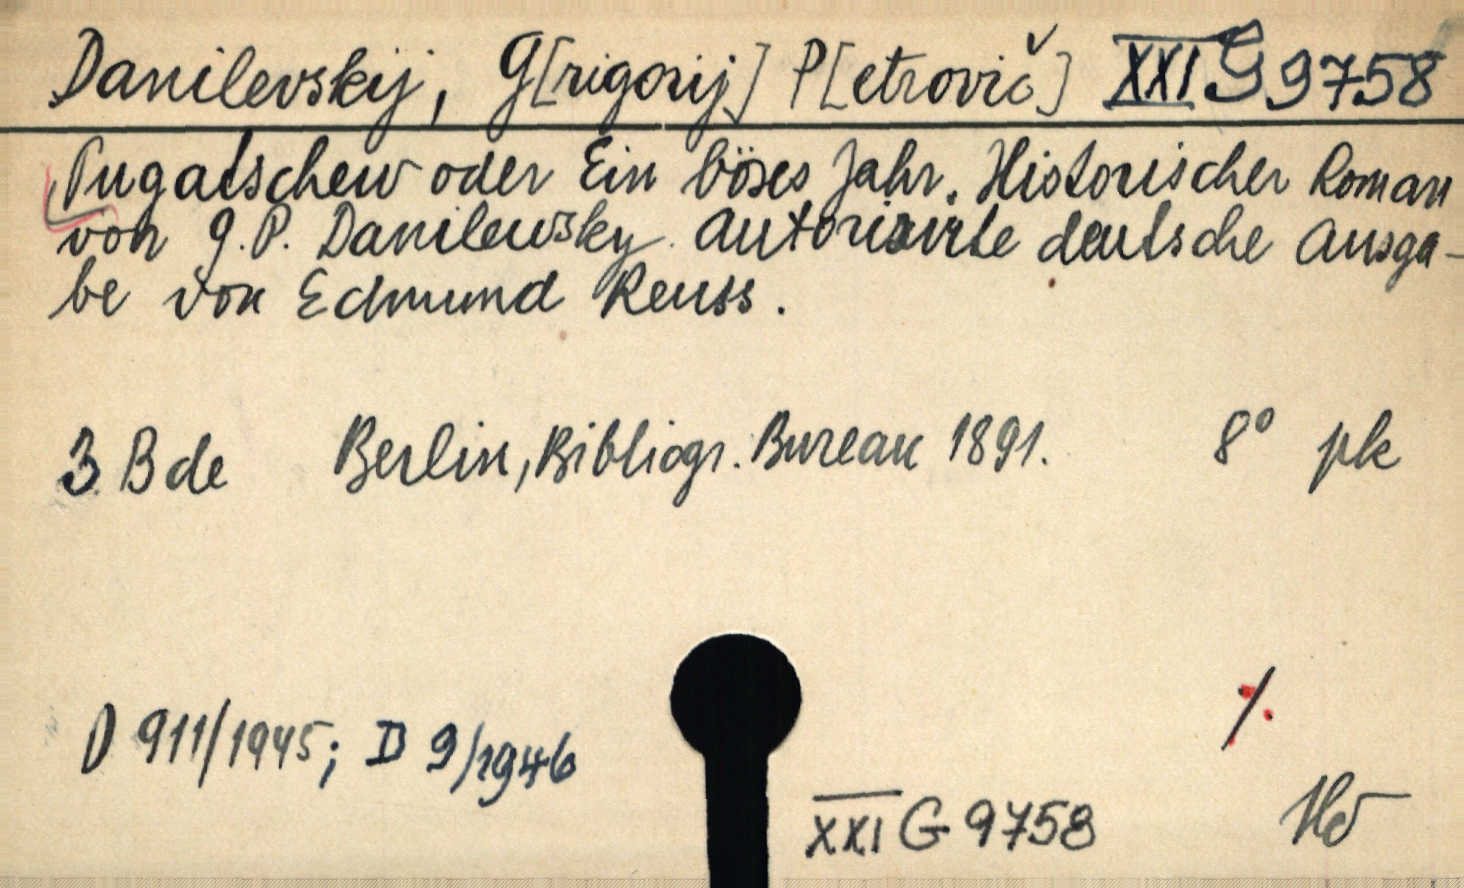 Danilevskij, G[rigorij] P[etrovič] XXI G 9758
Pugatschew oder Ein böses Jahr. Historischer Roman
von G. P. Danilewsky. Autorisirte deutsche Ausga-
be von Edmund Reuss.
3 Bde Berlin, Bibliogr. Bureau 1891. 8° pk
D 911/1945; D 9/1946
XXI G 9758